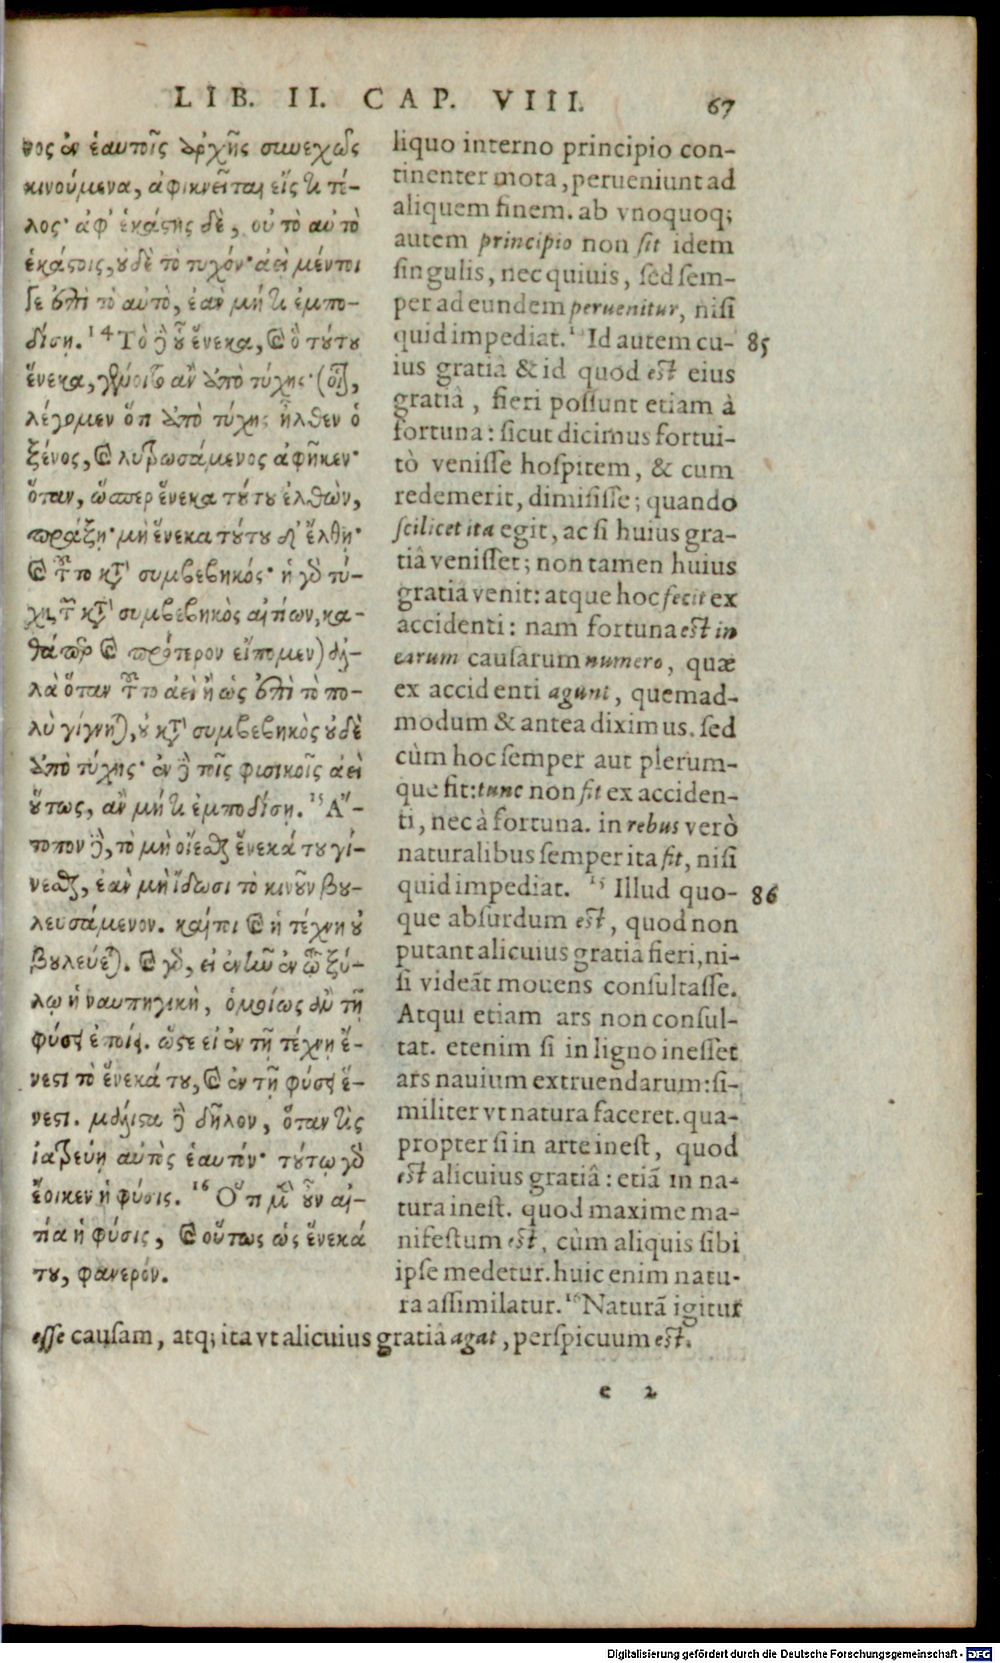 LIB. II. CAP. VIII. 67
νος ἐν ἑαυτοῖς ἀρχῆς συνεχῶς
κινούμενα, ἀφικνεῖται εἴς τι τέ-
λος· ἀφ' ἑκάστης δὲ, οὐ τὸ αὐτὸ
ἑκάστοις, οὐδὲ τὸ τυχόν· ἀεὶ μέντοι
γε ἐπὶ τὸ αὐτὸ, ἐὰν μή τι ἐμπο-
δίσῃ. 14 Τὸ δὲ οὗ ἕνεκα, καὶ ὃ τούτου
ἕνεκα, γένοιτο ἂν ἀπὸ τύχης· (οἷον,
λέγομεν ὅτι ἀπὸ τύχης ἦλθεν ὁ
ξένος, καὶ λυτρωσάμενος ἀφῆκεν·
ὅταν, ὥσπερ ἕνεκα τούτου ἐλθὼν,
πράξῃ· μὴ ἕνεκα τούτου δ' ἔλθῃ·
καὶ τοῦτο κατὰ συμβεβηκός· ἡ γὰρ τύ-
χη τῶν κατὰ συμβεβηκὸς αἰτίων, κα-
θάπερ καὶ πρότερον εἴπομεν) ἀλ-
λὰ ὅταν τοῦτο ἀεὶ ἢ ὡς ἐπὶ τὸ πο-
λὺ γίγνηται, οὐ κατὰ συμβεβηκὸς οὐδὲ
ἀπὸ τύχης· ἐν δὲ τοῖς φυσικοῖς ἀεὶ
οὕτως, ἂν μή τι ἐμποδίσῃ. 15 Ἄ-
τοπον δὲ, τὸ μὴ οἴεσθαι ἕνεκά του γί-
νεσθαι, ἐὰν μὴ ἴδωσι τὸ κινοῦν βου-
λευσάμενον. καίτοι καὶ ἡ τέχνη οὐ
βουλεύεται. καὶ γὰρ, εἰ ἐνῆν ἐν τῷ ξύ-
λῳ ἡ ναυπηγικὴ, ὁμοίως ἂν τῇ
φύσει ἐποίει. ὥστε εἰ ἐν τῇ τέχνῃ ἔ-
νεστι τὸ ἕνεκά του, καὶ ἐν τῇ φύσει ἔ-
νεστι. μάλιστα δὲ δῆλον, ὅταν τις
ἰατρεύῃ αὐτὸς ἑαυτόν· τούτῳ γὰρ
ἔοικεν ἡ φύσις. 16 Ὅτι μὲν οὖν αἰ-
τία ἡ φύσις, καὶ οὕτως ὡς ἕνεκά
του, φανερόν.
liquo interno principio con-
tinenter mota, perueniunt ad
aliquem finem. ab vnoquoq;
autem principio non fit idem
singulis, nec quiuis, sed sem-
per ad eundem peruenitur, nisi
quid impediat. Id autem cu- 85
ius gratiâ & id quod est eius
gratiâ, fieri possunt etiam à
fortuna: sicut dicimus fortui-
tò venisse hospitem, & cum
redemerit, dimisisse; quando
scilicet ita egit, ac si huius gra-
tiâ venisset; non tamen huius
gratiâ venit: atque hoc fecit ex
accidenti: nam fortuna est in
earum causarum numero, quæ
ex accidenti agunt, quemad-
modum & antea diximus. sed
cùm hoc semper aut plerum-
que fit: tunc non fit ex acciden-
ti, nec à fortuna. in rebus verò
naturalibus semper ita fit, nisi
quid impediat. 15 Illud quo- 86
que absurdum est, quod non
putant alicuius gratiâ fieri, ni-
si videãt mouens consultasse.
Atqui etiam ars non consul-
tat. etenim si in ligno inesset
ars nauium extruendarum: si-
militer vt natura faceret. qua-
propter si in arte inest, quod
est alicuius gratiâ: etiã in na-
tura inest. quod maxime ma-
nifestum est, cùm aliquis sibi
ipse medetur. huic enim natu-
ra assimilatur. 16 Naturã igitur
esse causam, atq; ita vt alicuius gratiâ agat, perspicuum est.
e 2
Digitalisierung gefördert durch die Deutsche Forschungsgemeinschaft - DFG